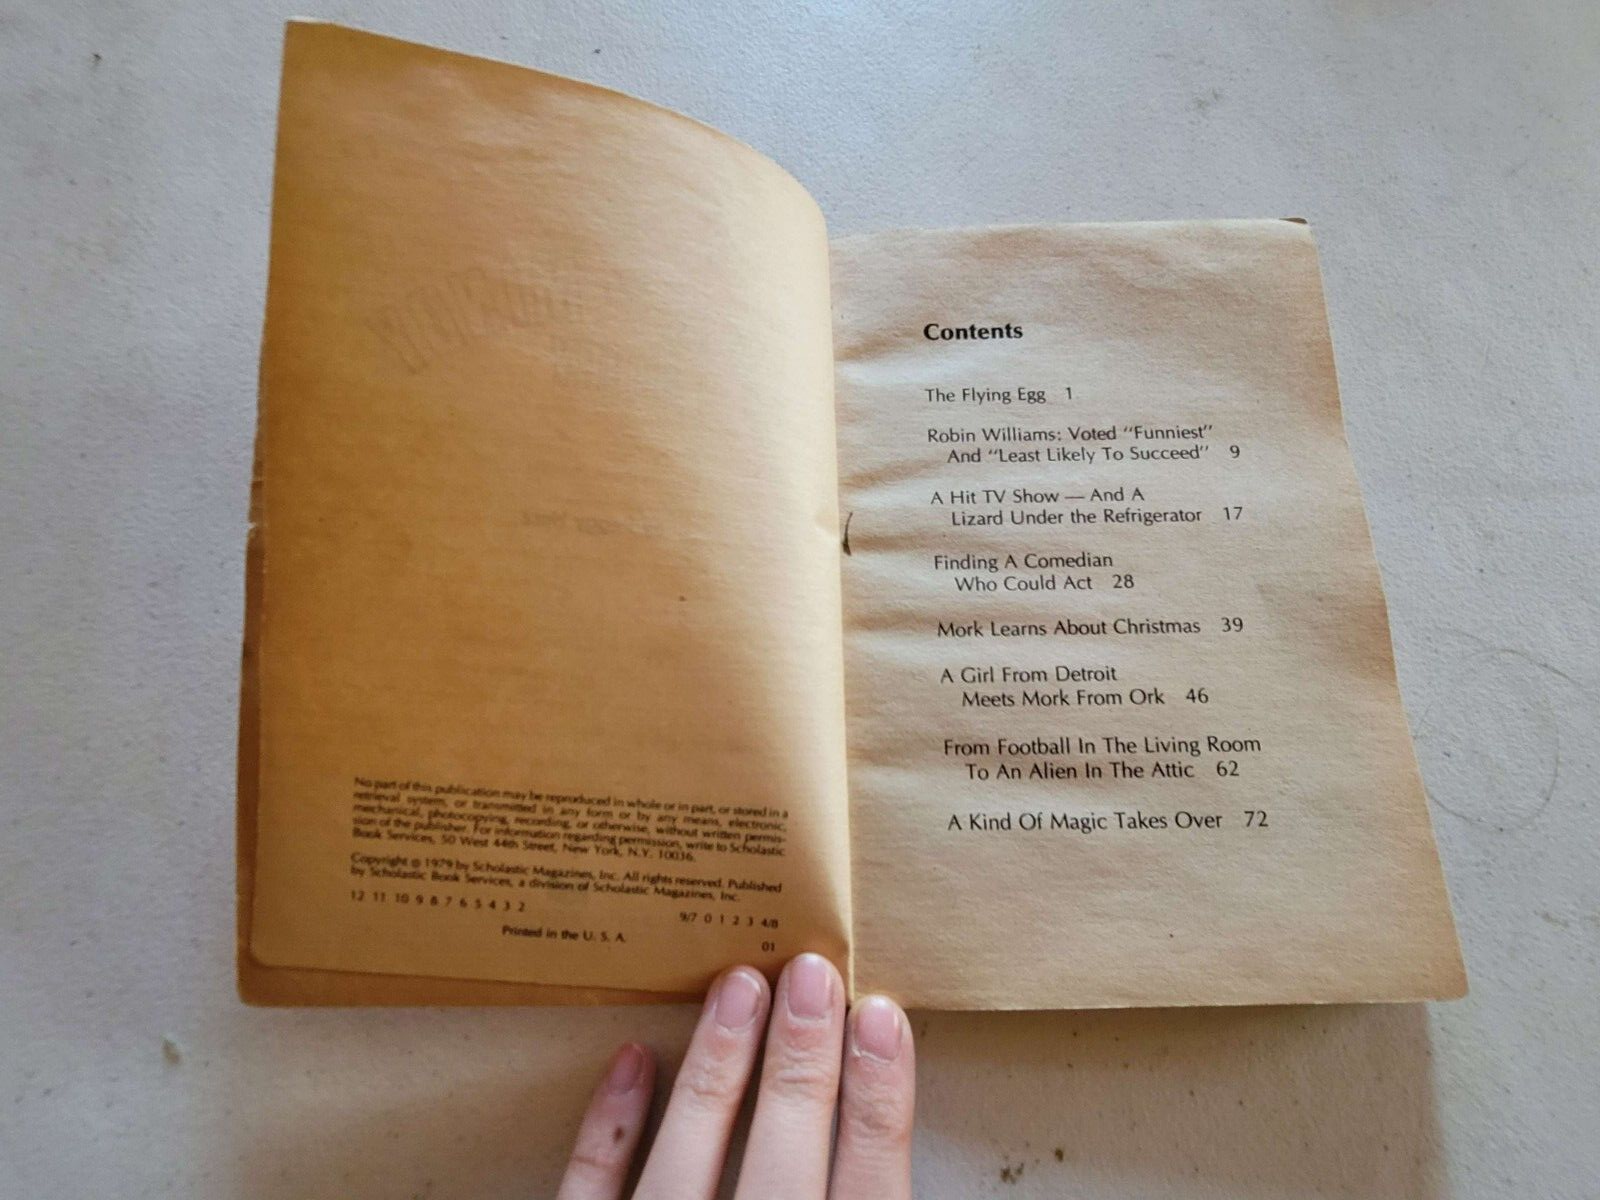 No part of this publication may be reproduced in whole or in part, or stored in a
retrieval system, or transmitted in any form or by any means, electronic,
mechanical, photocopying, recording, or otherwise, without written permis-
sion of the publisher. For information regarding permission, write to Scholastic
Book Services, 50 West 44th Street, New York, N.Y. 10036.
Copyright © 1979 by Scholastic Magazines, Inc. All rights reserved. Published
by Scholastic Book Services, a division of Scholastic Magazines, Inc.
12 11 10 9 8 7 6 5 4 3 2
9/7 0 1 2 3 4/8
Printed in the U. S. A.
01
Contents
The Flying Egg 1
Robin Williams: Voted "Funniest"
And "Least Likely To Succeed" 9
A Hit TV Show — And A
Lizard Under the Refrigerator 17
Finding A Comedian
Who Could Act 28
Mork Learns About Christmas 39
A Girl From Detroit
Meets Mork From Ork 46
From Football In The Living Room
To An Alien In The Attic 62
A Kind Of Magic Takes Over 72